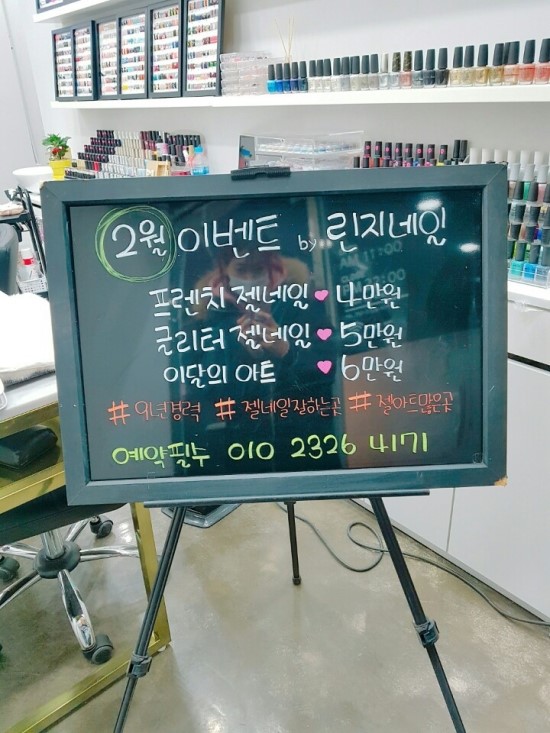 2월 이벤트 by 린지네일
프렌치 젤네일 ♥ 4만원
글리터 젤네일 ♥ 5만원
이달의 아트 ♥ 6만원
#9년경력 #젤네일잘하는곳 #젤아트많은곳
예약필수 010 2326 4171